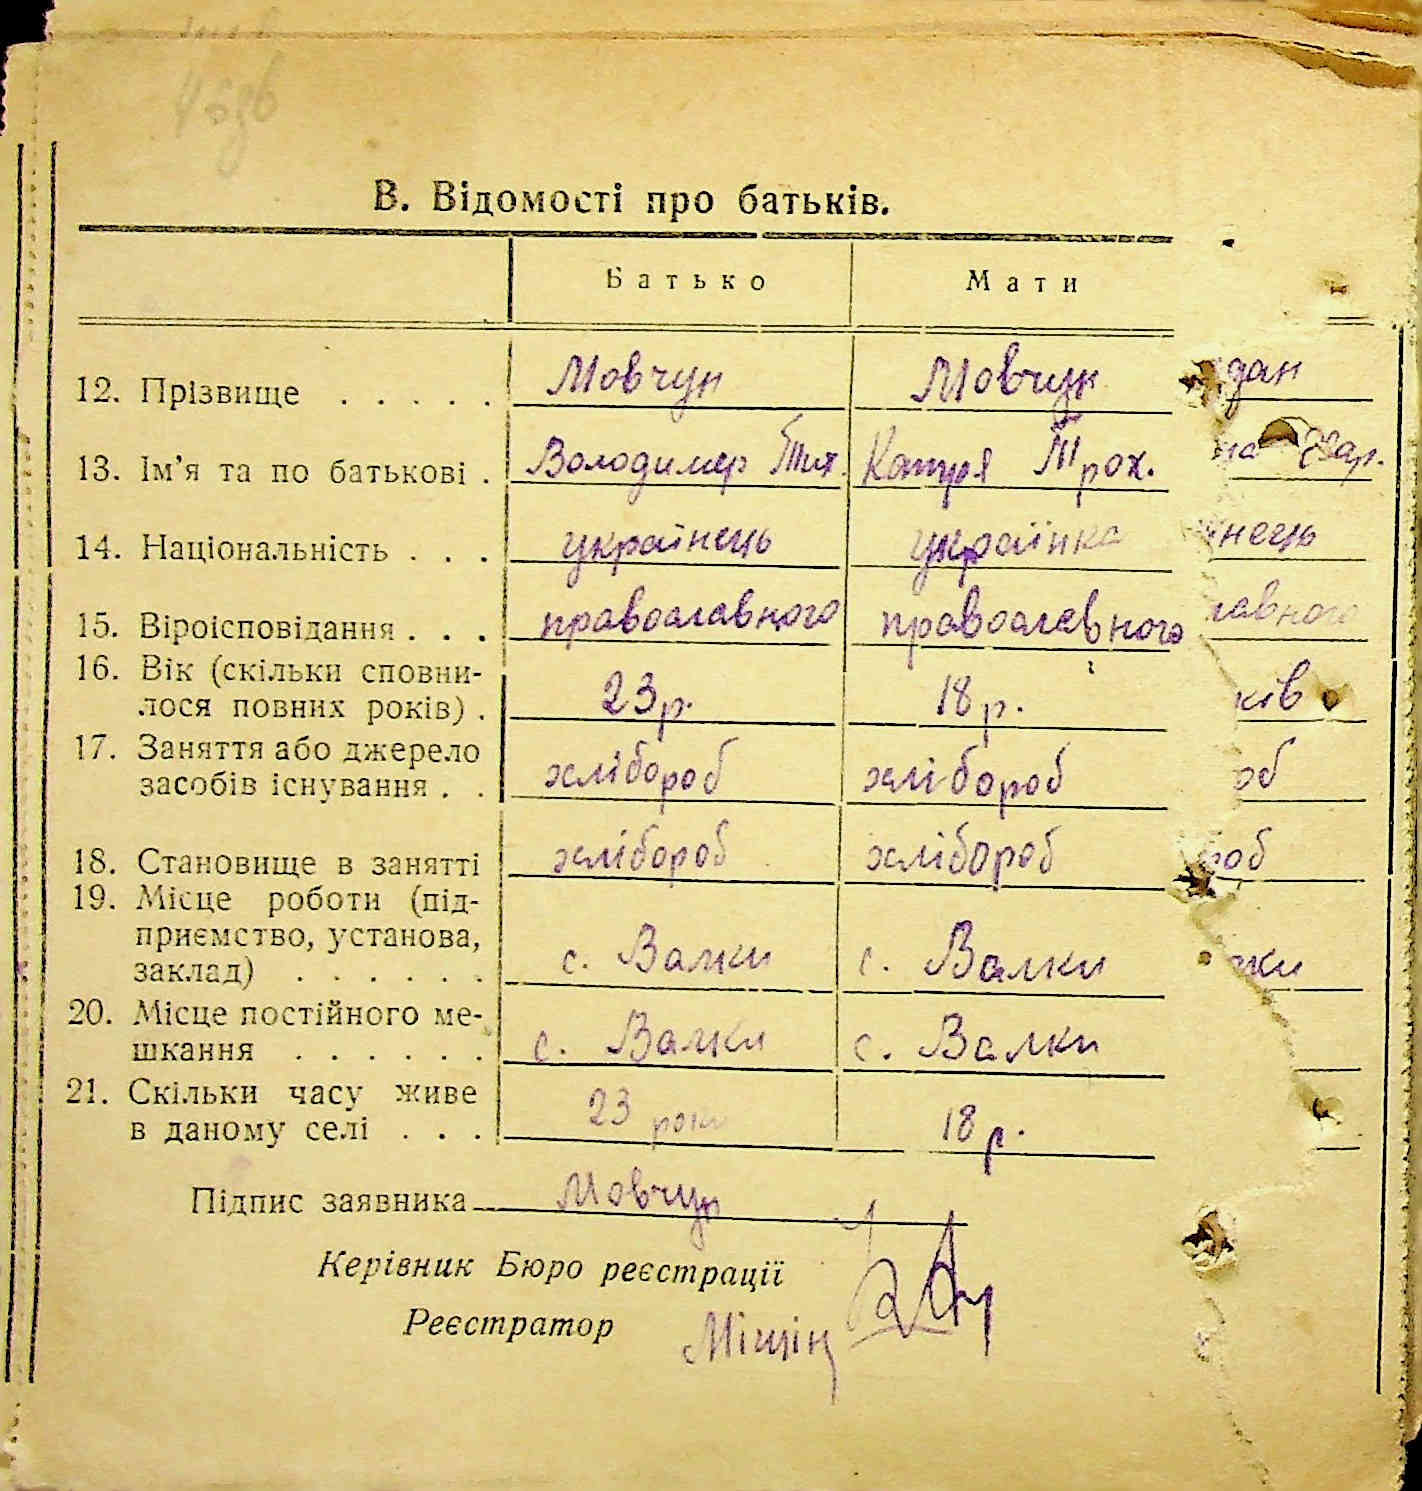 В. Відомості про батьків.
Батько Мати
12. Прізвище . . . . . Мовчун Мовчун дан
13. Ім'я та по батькові . Володимер Тит. Катря Трох. на Хар.
14. Національність . . . українець українка нець
15. Віроісповідання . . . православного православного лавного
16. Вік (скільки сповни-
лося повних років) . 23 р. 18 р. ків
17. Заняття або джерело
засобів існування . . хлібороб хлібороб об
18. Становище в занятті хлібороб хлібороб роб
19. Місце роботи (під-
приємство, установа,
заклад) . . . . . . с. Валки с. Валки лки
20. Місце постійного ме-
шкання . . . . . . с. Валки с. Валки
21. Скільки часу живе
в даному селі . . . 23 роки 18 р.
Підпис заявника Мовчун
Керівник Бюро реєстрації
Реєстратор